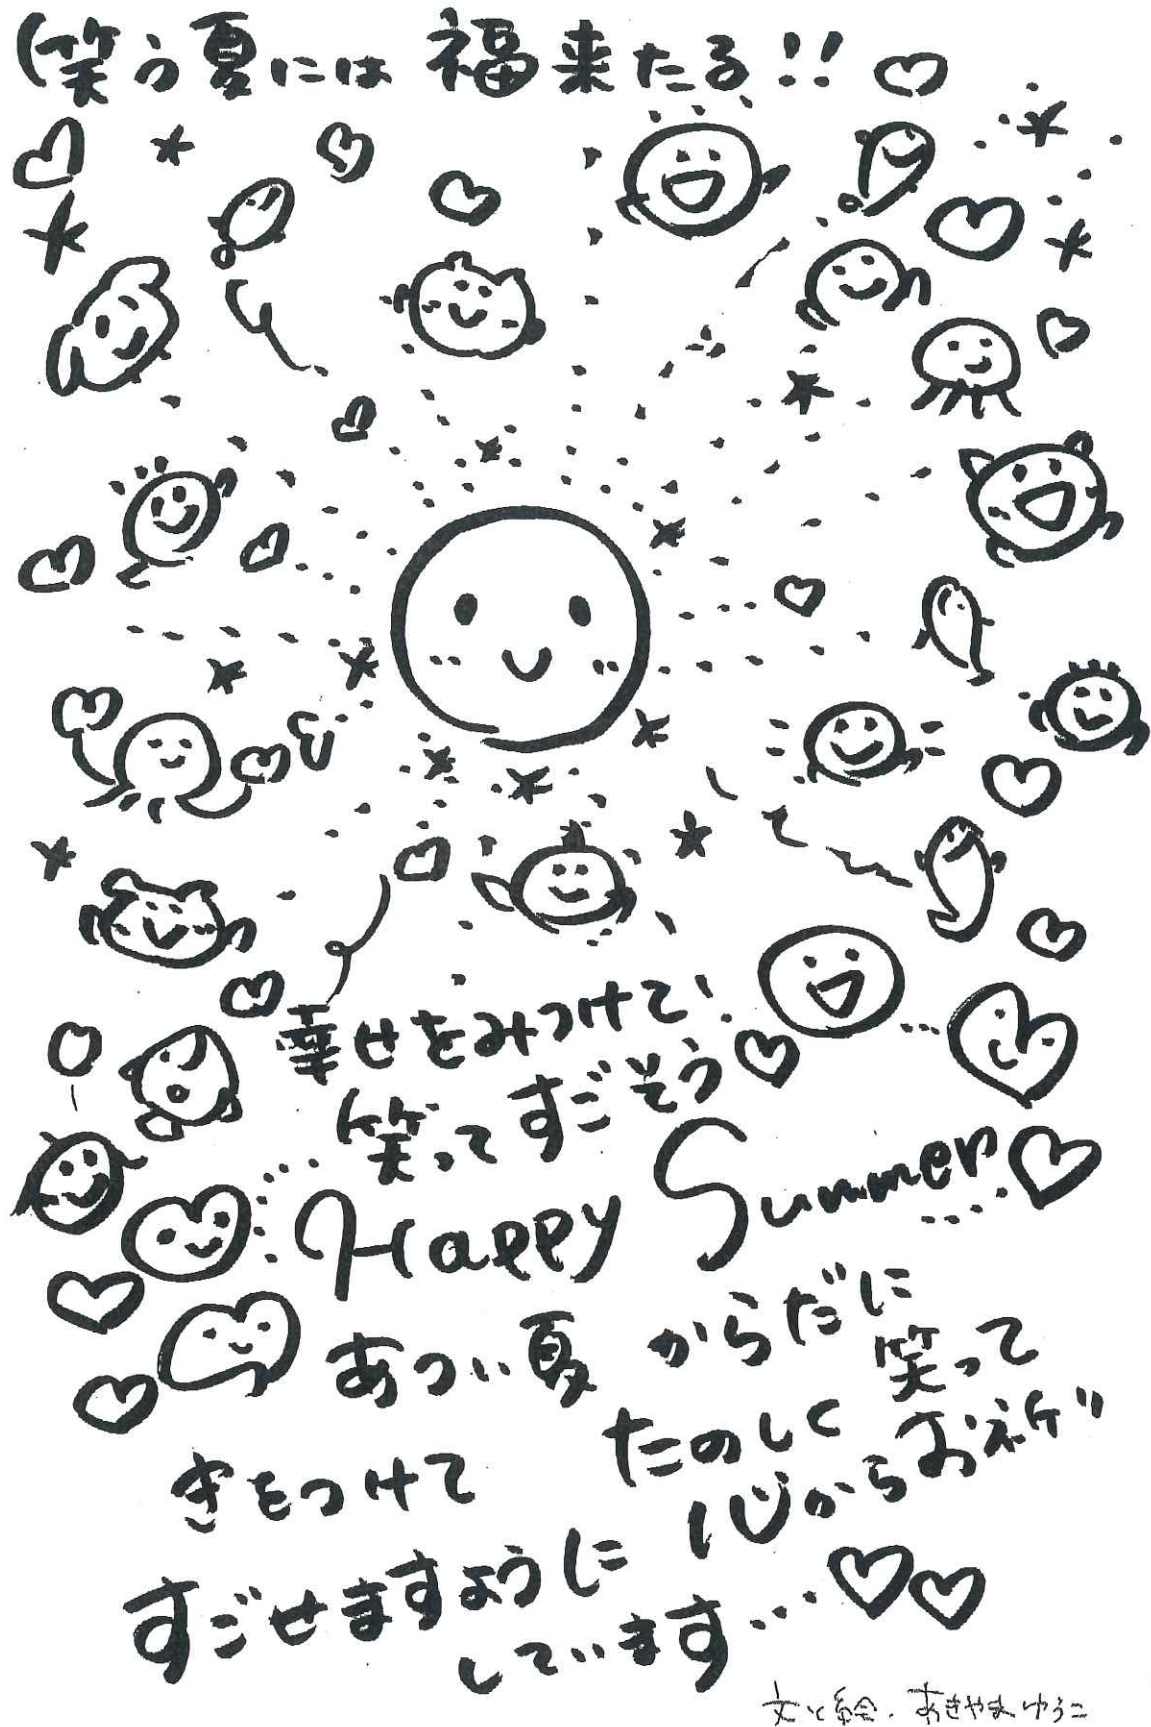 笑う夏には福来たる!!
幸せをみつけて!
笑ってすごそう
Happy Summer
あつい夏 からだに
きをつけて
笑って
たのしく
すごせますように
心からお祈り
しています…
文と絵・あきやまゆうこ